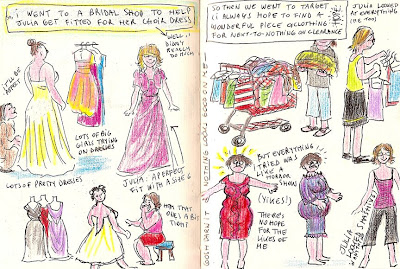 So, I WENT TO A BRIDAL SHOP TO HELP
JULIA GET FITTED FOR HER CHOIR DRESS
WELL I
DIDN'T
REALLY
DO MUCH
I'LL BE
LOTS OF BIG
GIRLS TRYING
ON DRESSES
LOTS OF PRETTY DRESSES
JULIA: A PERFECT
FIT WITH A SIZE 6
THAT
ONE'S A BIT
TIGHT
SO THEN WE WENT TO TARGET
(I ALWAYS HOPE TO FIND A
WONDERFUL PIECE OF CLOTHING
FOR NEXT-TO-NOTHING ON CLEARANCE
JULIA LOOKED
AT EVERYTHING
(ME TOO)
GOSH DARN IT NOTHING LOOKS GOOD ON ME
BUT EVERYTHING
I TRIED WAS
LIKE A
HORROR
SHOW
(YIKES!)
THERE'S
NO HOPE
FOR THE
LIKES OF
ME
JULIA